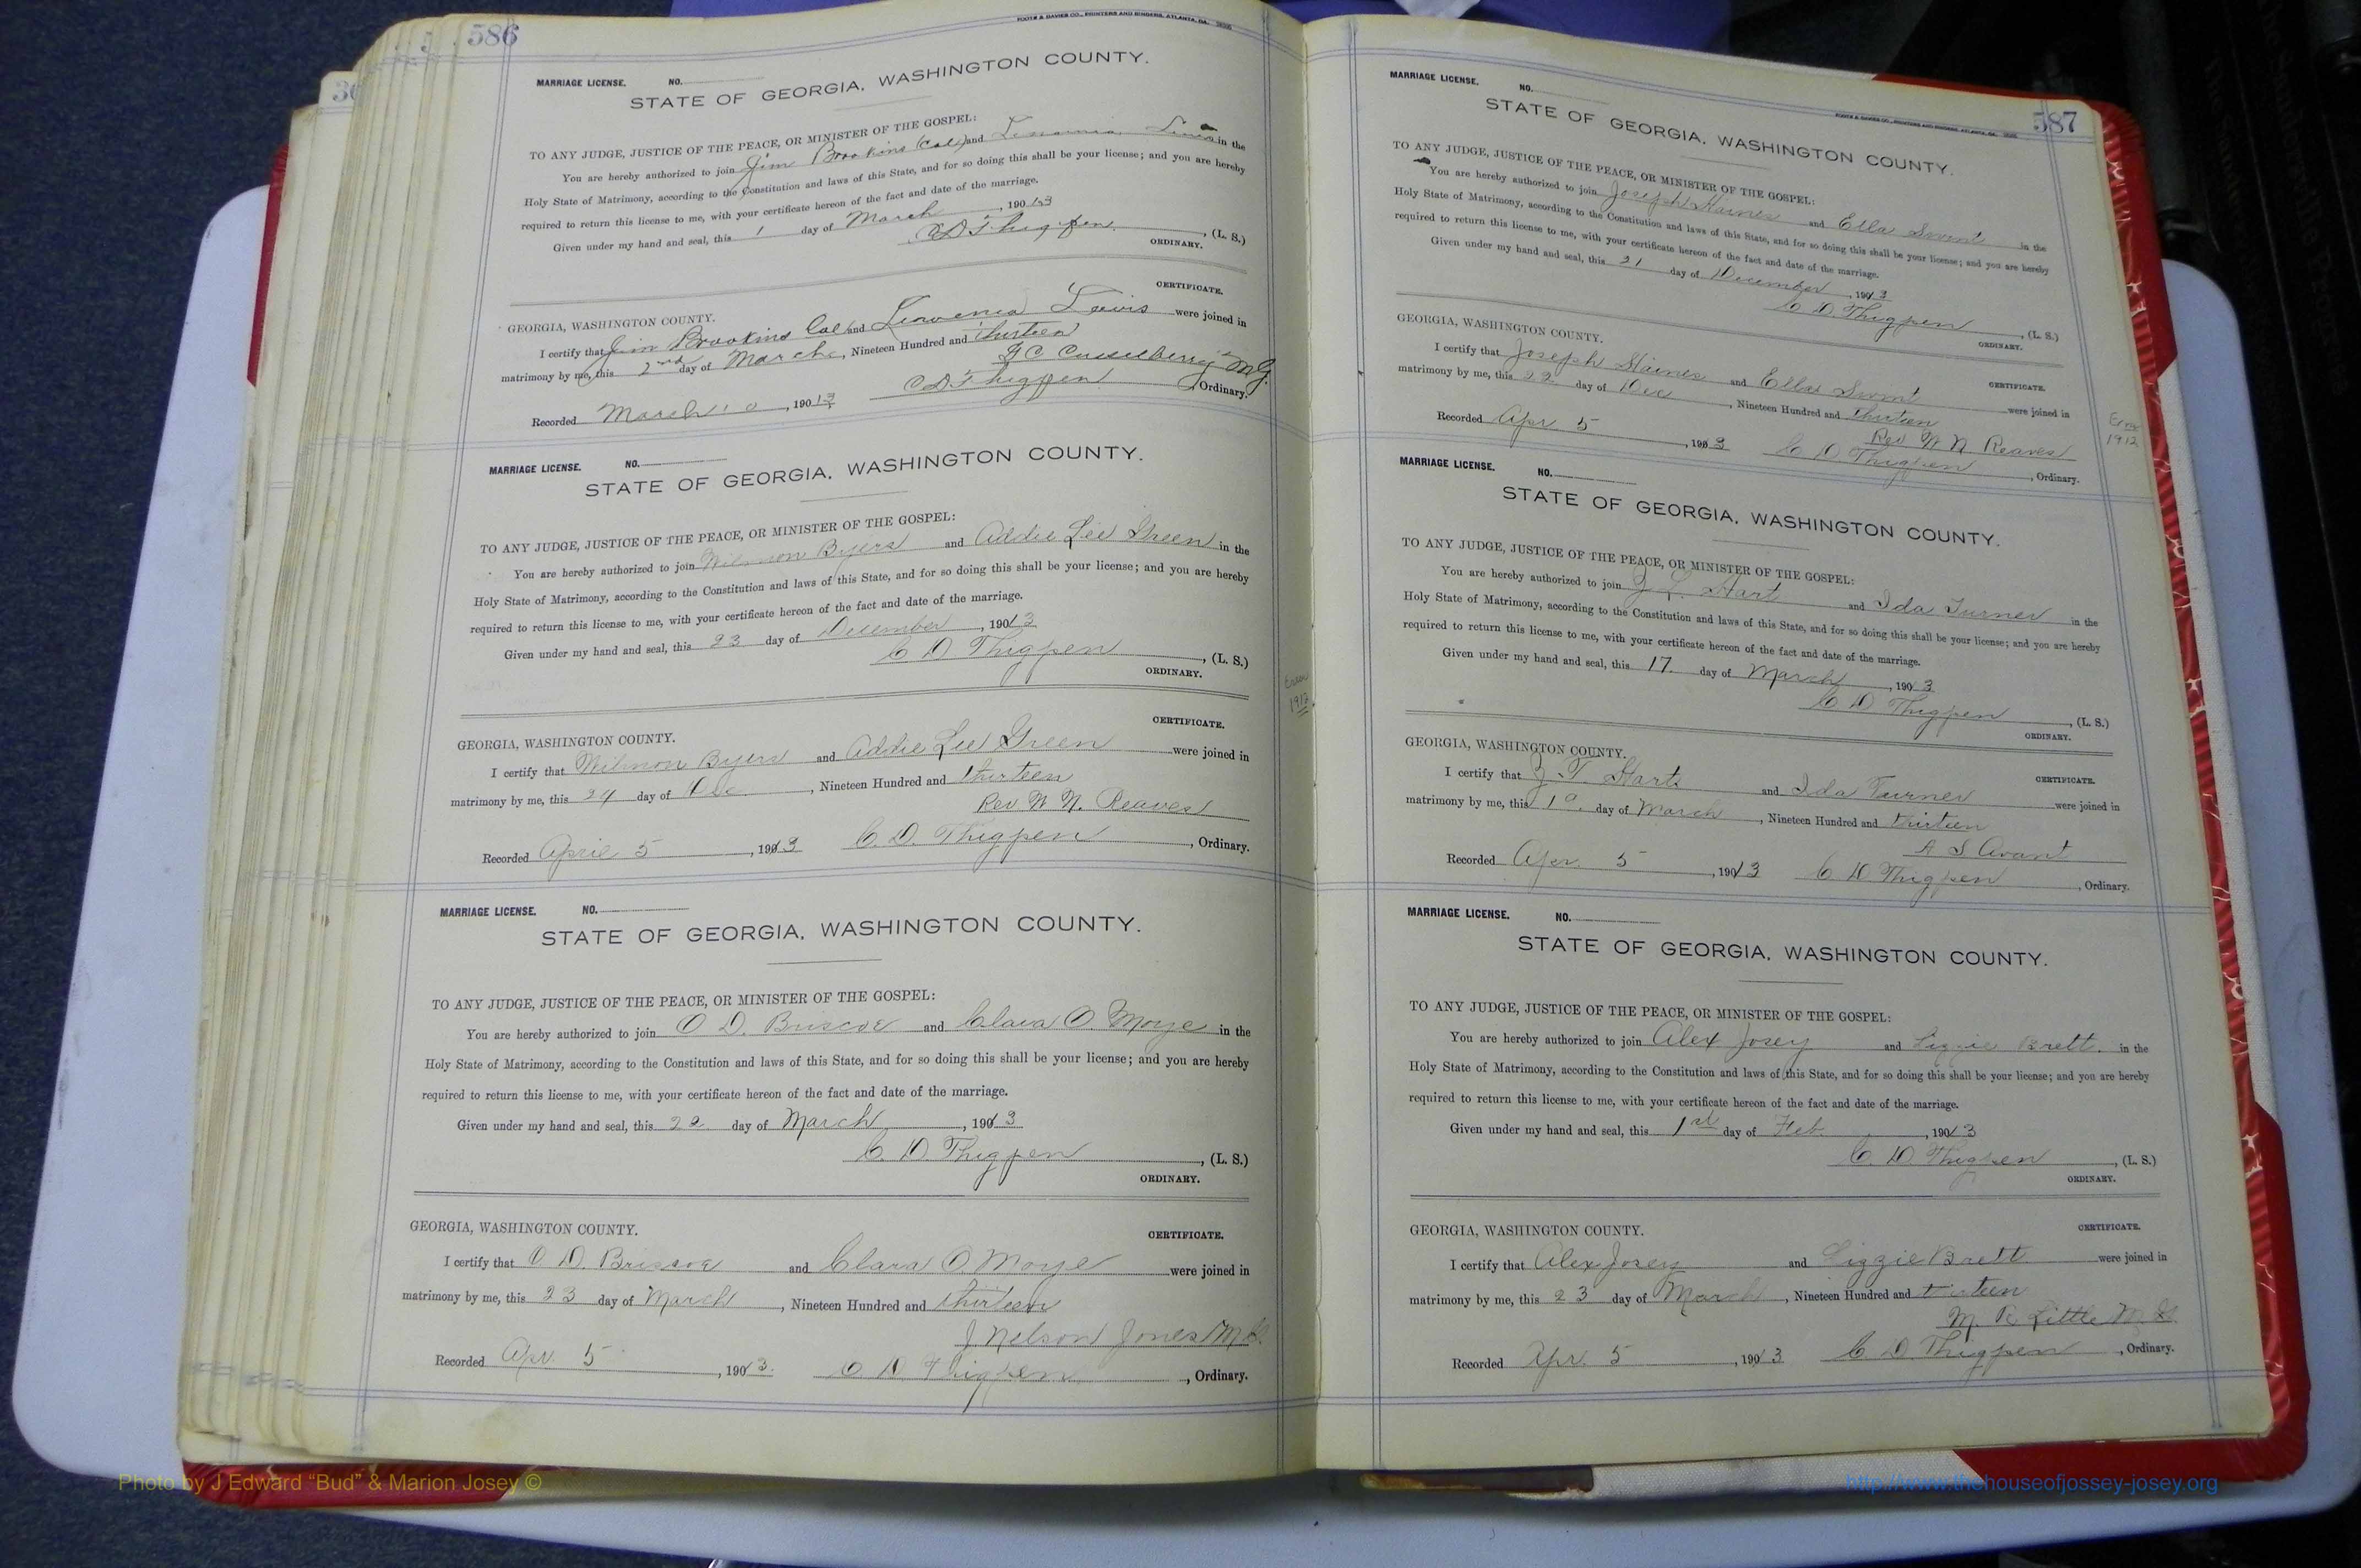 586
FOOTE & DAVIES CO., PRINTERS AND BINDERS, ATLANTA, GA.
MARRIAGE LICENSE. NO.
STATE OF GEORGIA, WASHINGTON COUNTY.
TO ANY JUDGE, JUSTICE OF THE PEACE, OR MINISTER OF THE GOSPEL:
You are hereby authorized to join Jim Brookins (Col) and Lewis in the
Holy State of Matrimony, according to the Constitution and laws of this State, and for so doing this shall be your license; and you are hereby
required to return this license to me, with your certificate hereon of the fact and date of the marriage.
Given under my hand and seal, this 1 day of March, 190 13
C D Thigpen, (L. S.)
ORDINARY.
CERTIFICATE.
GEORGIA, WASHINGTON COUNTY.
I certify that Jim Brookins Col and Lewis were joined in
matrimony by me, this 2nd day of March, Nineteen Hundred and thirteen
M G
Recorded March 10, 190 13 C D Thigpen Ordinary.
MARRIAGE LICENSE. NO.
STATE OF GEORGIA, WASHINGTON COUNTY.
TO ANY JUDGE, JUSTICE OF THE PEACE, OR MINISTER OF THE GOSPEL:
You are hereby authorized to join Wilmon Byers and Addie Lee Green in the
Holy State of Matrimony, according to the Constitution and laws of this State, and for so doing this shall be your license; and you are hereby
required to return this license to me, with your certificate hereon of the fact and date of the marriage.
Given under my hand and seal, this 23 day of December, 190 13
C D Thigpen, (L. S.)
ORDINARY.
Error
1912
CERTIFICATE.
GEORGIA, WASHINGTON COUNTY.
I certify that Wilmon Byers and Addie Lee Green were joined in
matrimony by me, this 24 day of Dec, Nineteen Hundred and thirteen
Rev W N. Reaves
Recorded April 5, 1913 C. D. Thigpen, Ordinary.
MARRIAGE LICENSE. NO.
STATE OF GEORGIA, WASHINGTON COUNTY.
TO ANY JUDGE, JUSTICE OF THE PEACE, OR MINISTER OF THE GOSPEL:
You are hereby authorized to join O D. Briscoe and Clara O Moye in the
Holy State of Matrimony, according to the Constitution and laws of this State, and for so doing this shall be your license; and you are hereby
required to return this license to me, with your certificate hereon of the fact and date of the marriage.
Given under my hand and seal, this 22 day of March, 1913
C. D. Thigpen, (L. S.)
ORDINARY.
GEORGIA, WASHINGTON COUNTY.
CERTIFICATE.
I certify that O D. Briscoe and Clara O Moye were joined in
matrimony by me, this 23 day of March, Nineteen Hundred and thirteen
J Nelson Jones M G.
Recorded Apr. 5, 1913. C D Thigpen, Ordinary.
587
FOOTE & DAVIES CO., PRINTERS AND BINDERS, ATLANTA, GA.
MARRIAGE LICENSE. NO.
STATE OF GEORGIA, WASHINGTON COUNTY.
TO ANY JUDGE, JUSTICE OF THE PEACE, OR MINISTER OF THE GOSPEL:
You are hereby authorized to join Joseph Haines and Ella Swint in the
Holy State of Matrimony, according to the Constitution and laws of this State, and for so doing this shall be your license; and you are hereby
required to return this license to me, with your certificate hereon of the fact and date of the marriage.
Given under my hand and seal, this 21 day of December, 1913
C D Thigpen, (L. S.)
ORDINARY.
GEORGIA, WASHINGTON COUNTY.
CERTIFICATE.
I certify that Joseph Haines and Ella Swint were joined in
matrimony by me, this 22 day of Dec, Nineteen Hundred and thirteen
Rev W N Reaves
Recorded Apr 5, 1913 C D Thigpen, Ordinary.
Error
1912
MARRIAGE LICENSE. NO.
STATE OF GEORGIA, WASHINGTON COUNTY.
TO ANY JUDGE, JUSTICE OF THE PEACE, OR MINISTER OF THE GOSPEL:
You are hereby authorized to join Hart and Ida Turner in the
Holy State of Matrimony, according to the Constitution and laws of this State, and for so doing this shall be your license; and you are hereby
required to return this license to me, with your certificate hereon of the fact and date of the marriage.
Given under my hand and seal, this 17. day of March, 190 3
C D Thigpen, (L. S.)
ORDINARY.
GEORGIA, WASHINGTON COUNTY.
CERTIFICATE.
I certify that Hart and Ida Turner were joined in
matrimony by me, this day of March, Nineteen Hundred and thirteen
A S Avant
Recorded Apr. 5, 1913 C D Thigpen, Ordinary.
MARRIAGE LICENSE. NO.
STATE OF GEORGIA, WASHINGTON COUNTY.
TO ANY JUDGE, JUSTICE OF THE PEACE, OR MINISTER OF THE GOSPEL:
You are hereby authorized to join Alex Josey and Lizzie Brett. in the
Holy State of Matrimony, according to the Constitution and laws of this State, and for so doing this shall be your license; and you are hereby
required to return this license to me, with your certificate hereon of the fact and date of the marriage.
Given under my hand and seal, this 1st day of Feb., 1913
C. D Thigpen, (L. S.)
ORDINARY.
GEORGIA, WASHINGTON COUNTY.
CERTIFICATE.
I certify that Alex Josey and Lizzie Brett were joined in
matrimony by me, this 23 day of March, Nineteen Hundred and thirteen
M. R Little M. G.
Recorded Apr. 5, 1913 C. D Thigpen, Ordinary.
Photo by J Edward “Bud” & Marion Josey ©
http://www.thehouseofjossey-josey.org